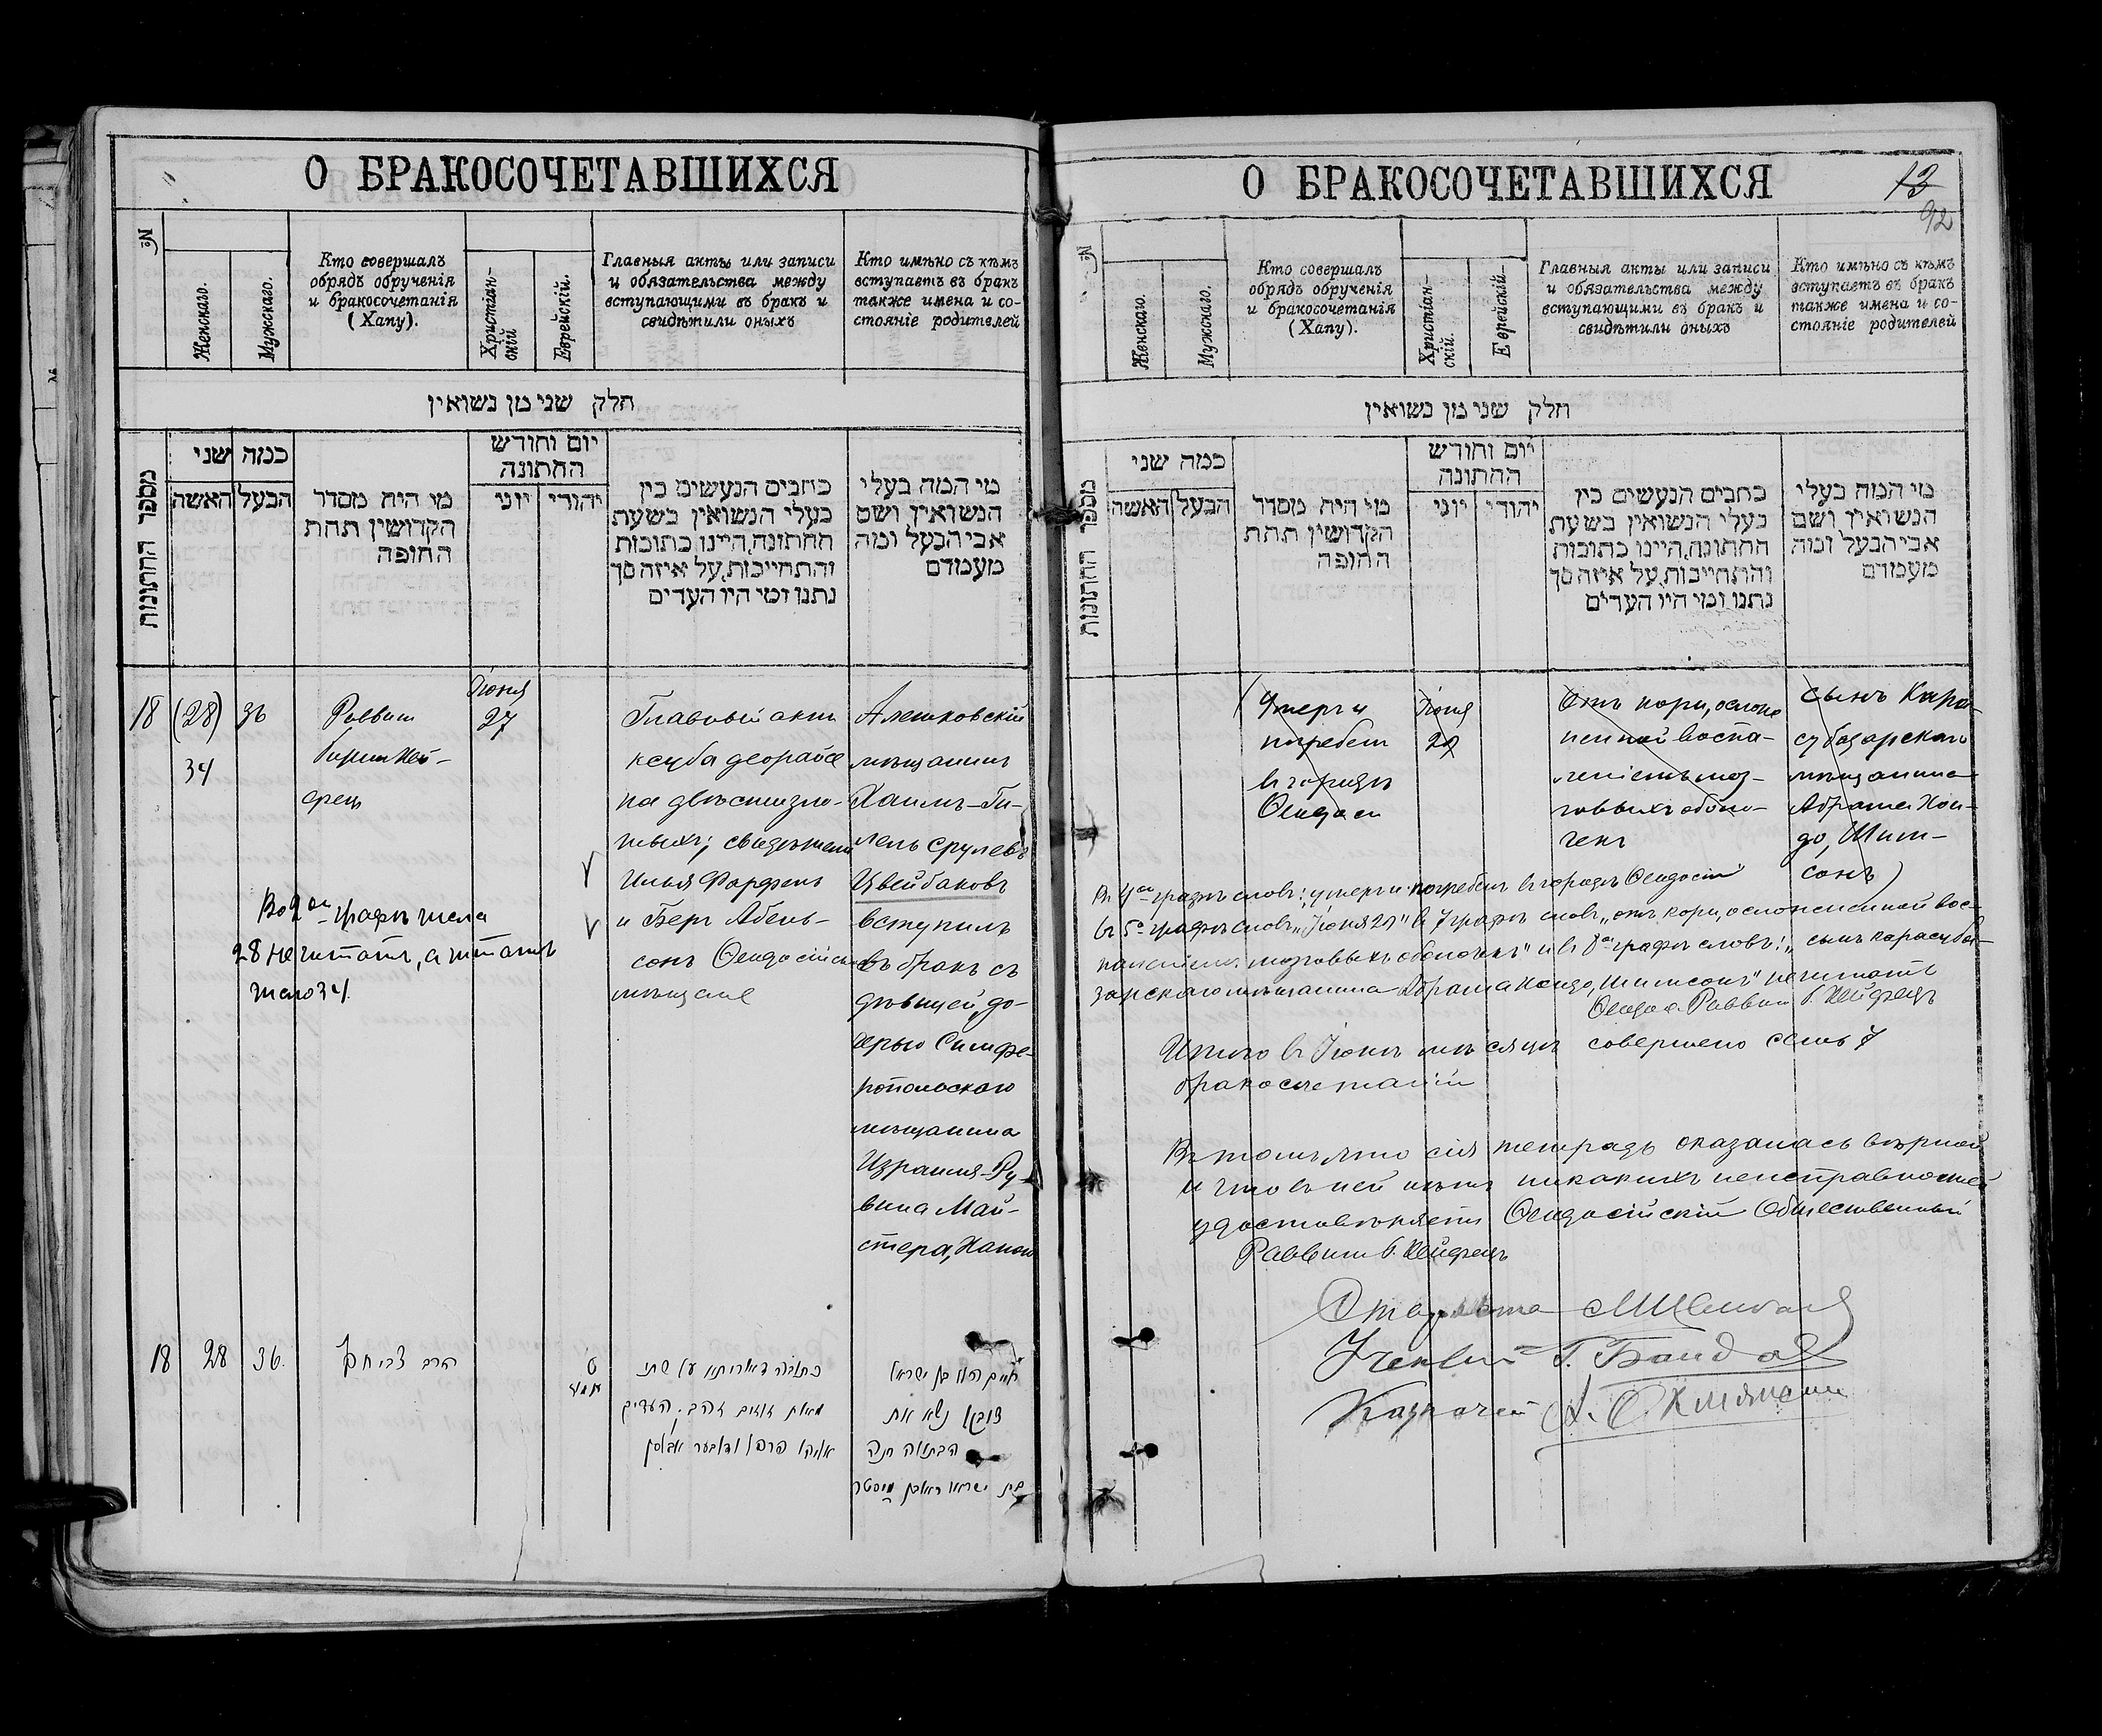 О БРАКОСОЧЕТАВШИХСЯ
№
Женскаго.
Мужскаго.
Кто совершалъ
обрядъ обрученія
и бракосочетанія
(Хапу).
Христіан-
скій
Еврейскій.
Главныя акты или записи
и обязательства между
вступающими въ бракъ и
свидѣтили оныхъ
Кто имѣно съ кѣмъ
вступаетъ въ бракъ
также имена и со-
стояніе родителей
חלק שני מן נשואין
מספר החתונות
כמה שני
האשה
הבעל
מי היה מסדר
הקדושין תחת
החופה
יום וחודש
החתונה
יוני
יהודי
כתבים הנעשים בין
בעלי הנשואין בשעת
החתונה, היינו כתובות
והתחייבות, על איזה סך
נתנו ומי היו העדים
מי המה בעלי
הנשואין ושם
אבי הבעל ומה
מעמדם
18 (28) 36
34
Раввин
Хей-
фец
Іюня
27
Главный акт
ксуба деорайсе
на двѣсти зло-
тыхъ; свидѣтели
Илья Фарфель
и Беръ Абель-
сонъ Ѳеодосійскіе
мѣщане
Алешковскій
мѣщанинъ
Хаимъ-Ги-
лель Срулевъ
Цвейбаковъ
вступилъ
въ бракъ съ
дѣвицей, до-
черью Симфе-
ропольскаго
мѣщанина
Израиля-Ру-
вина Май-
стера, Ханою
Во 2ой графѣ числа
28 не читать, а читать
число 34.
18 28 36.
הרב צבי חפץ
כתובה דאורייתא על שתי
מאות זוזים זהב. העדים
אליהו פרפל ובער אבלסון
חיים הלל בן ישראל
נשא את
הבתולה חנה
בת ישראל ראובן מיסטר
О БРАКОСОЧЕТАВШИХСЯ
13
92
№
Женскаго.
Мужскаго.
Кто совершалъ
обрядъ обрученія
и бракосочетанія
(Хапу).
Христіан-
скій.
Еврейскій
Главныя акты или записи
и обязательства между
вступающими въ бракъ и
свидѣтили оныхъ
Кто имѣно съ кѣмъ
вступаетъ въ бракъ
также имена и со-
стояніе родителей
חלק שני מן נשואין
מספר החתונות
כמה שני
האשה
הבעל
מי היה מסדר
הקדושין תחת
החופה
יום וחודש
החתונה
יוני
יהודי
כתבים הנעשים בין
בעלי הנשואין בשעת
החתונה, היינו כתובות
והתחייבות, על איזה סך
נתנו ומי היו העדים
מי המה בעלי
הנשואין ושם
אבי הבעל ומה
מעמדם
(Умеръ и
погребенъ
въ городѣ
Ѳеодосіи
Іюня
28
Отъ кори, ослож-
ненной воспа-
леніемъ моз-
говыхъ оболо-
чекъ
сынъ Кара-
субазарскаго
мѣщанина
Абрама Кон-
до, Шим-
сонъ)
Въ 4ой графѣ словъ: "умеръ и погребенъ въ городѣ Ѳеодосіи"
въ 5ой графѣ словъ "Іюня 28" въ 7 графѣ словъ "отъ кори, осложненной вос-
паленіемъ мозговыхъ оболочекъ" и въ 8ой графѣ словъ: "сынъ Карасуба-
зарскаго мѣщанина Абрама Кондо, Шимсонъ" не читать
Ѳеодос. Раввинъ Хейфецъ
Итого въ Іюнѣ мѣсяцѣ совершено семь 7
бракосочетаній
Въ томъ, что сія тетрадь оказалась вѣрной
и что въ ней нѣтъ никакихъ неисправностей
удостовѣряетъ Ѳеодосійскій Общественный
Раввинъ Хейфецъ
Староста
Ученый
Казначей